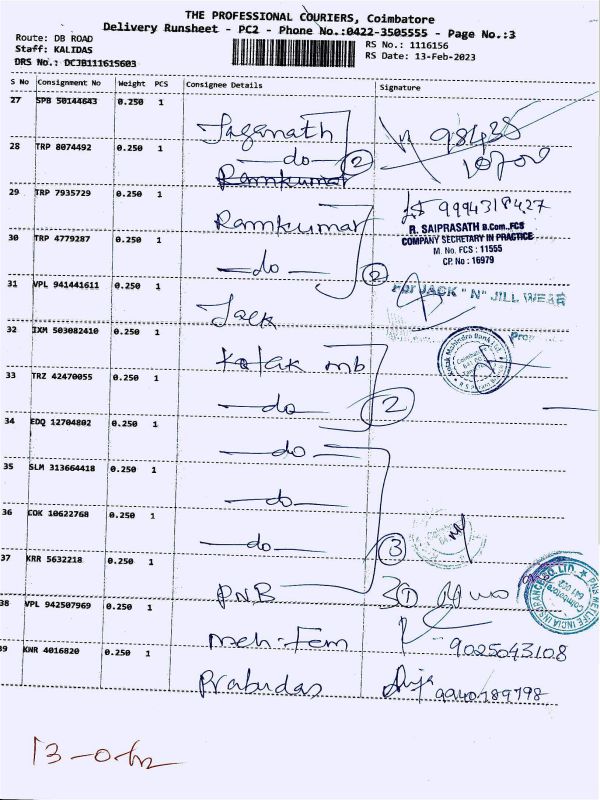 THE PROFESSIONAL COURIERS, Coimbatore
Delivery Runsheet - PC2 - Phone No.:0422-3505555 - Page No.:3
Route: DB ROAD
RS No.: 1116156
Staff: KALIDAS
RS Date: 13-Feb-2023
DRS No.: DCJB111615603
S No Consignment No Weight PCS Consignee Details Signature
27 SPB 50144643 0.250 1
Jaganath
98438
28 TRP 8074492 0.250 1
do 2
Ramkumar
29 TRP 7935729 0.250 1
Ramkumar
9994318427
R. SAIPRASATH B.Com.,FCS
COMPANY SECRETARY IN PRACTICE
M. No. FCS : 11555
CP. No : 16979
30 TRP 4779287 0.250 1
do 2
31 VPL 941441611 0.250 1
For JACK "N" JILL WEAR
Jack
32 IXM 503082410 0.250 1
Kotak mb
Kotak Mahindra Bank Ltd.
Coimbatore
33 TRZ 42470055 0.250 1
do 2
34 EDQ 12704802 0.250 1
do
35 SLM 313664418 0.250 1
do
36 COK 10622768 0.250 1
do 3
37 KRR 5632218 0.250 1
PNB
PNB METLIFE INDIA INSURANCE CO. LTD.
Coimbatore
38 VPL 942507969 0.250 1
Meh-Fem
9025043108
39 KNR 4016820 0.250 1
Prabudas
9940789798